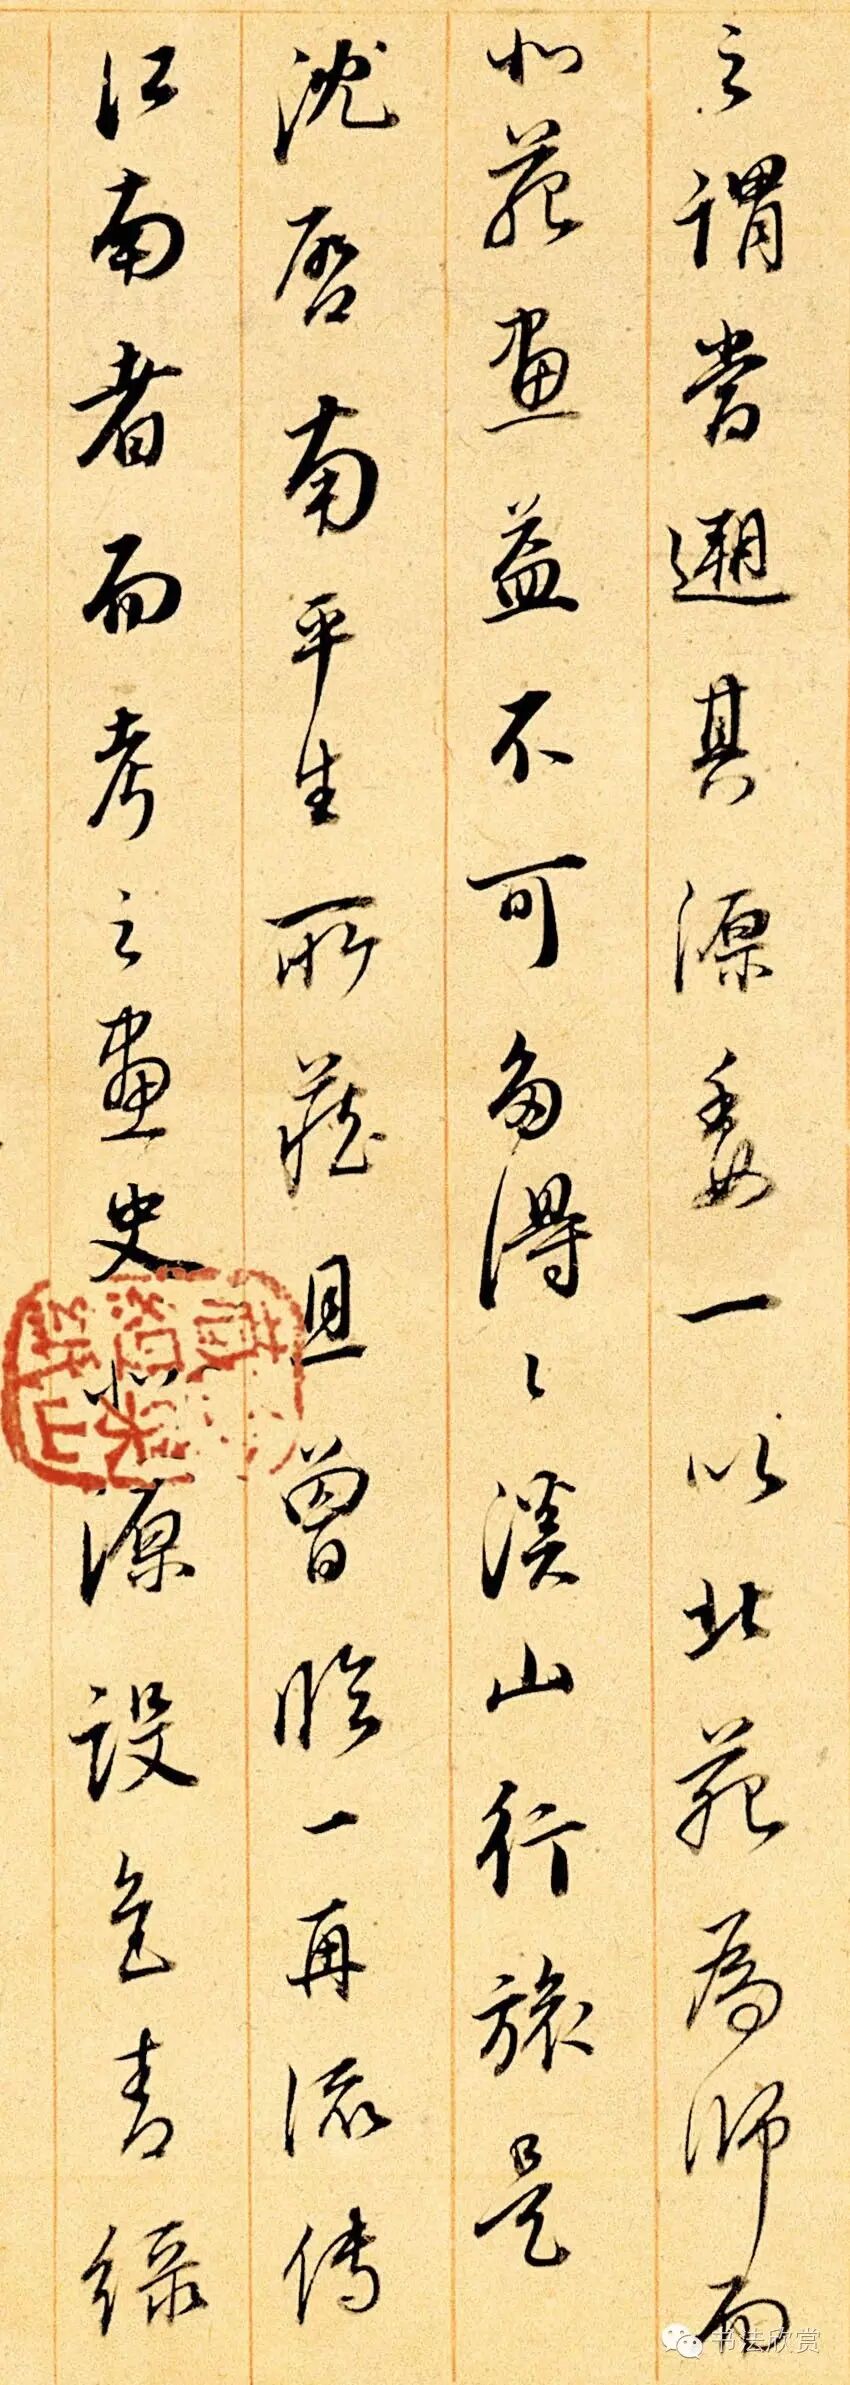 之謂嘗遡其源委一以北苑為師而
北苑畫益不可多得得溪山行旅是
沈啓南平生所藏且曾臨一再流傳
江南者而考之畫史北源設色青綠
书法欣赏